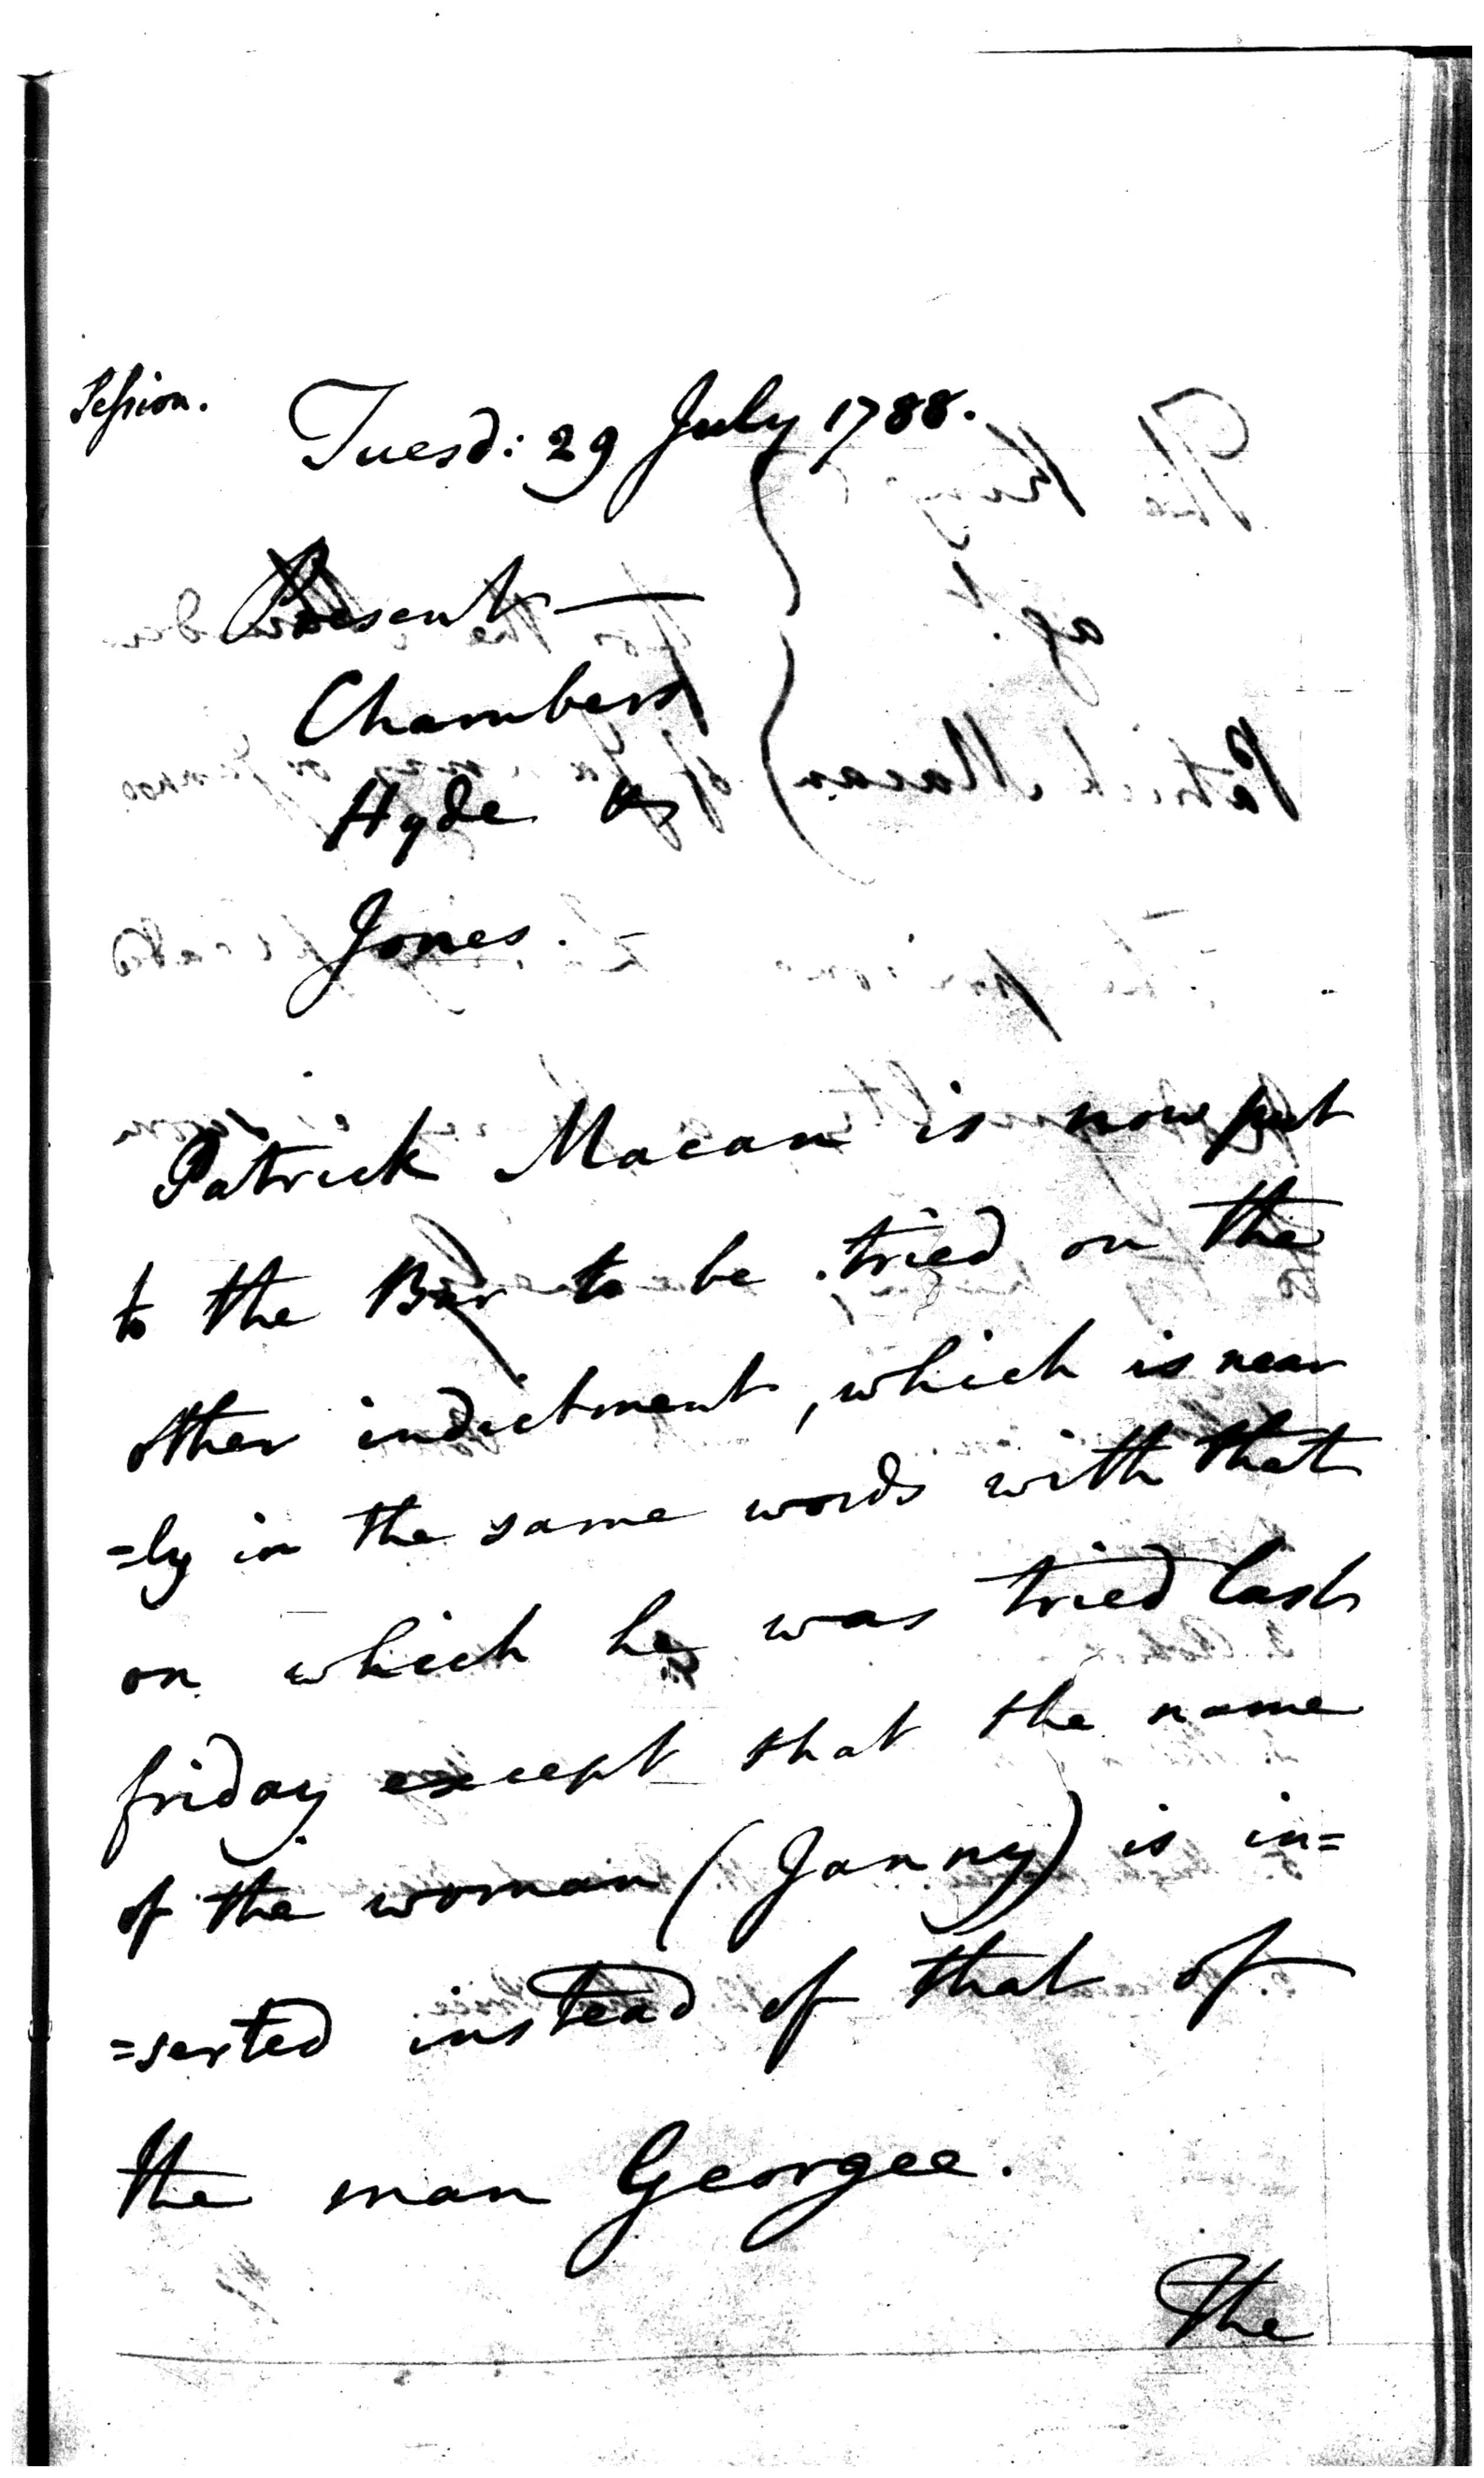 Session.
Tuesd: 29 July 1788.
Present —
Chambers
Hyde &
Jones.
Patrick Macan is now put
to the Bar to be tried on the
other indictment, which is near
=ly in the same words with that
on which he was tried last
friday except that the name
of the woman (Janny) is in=
=serted instead of that of
the man Georgee.
The